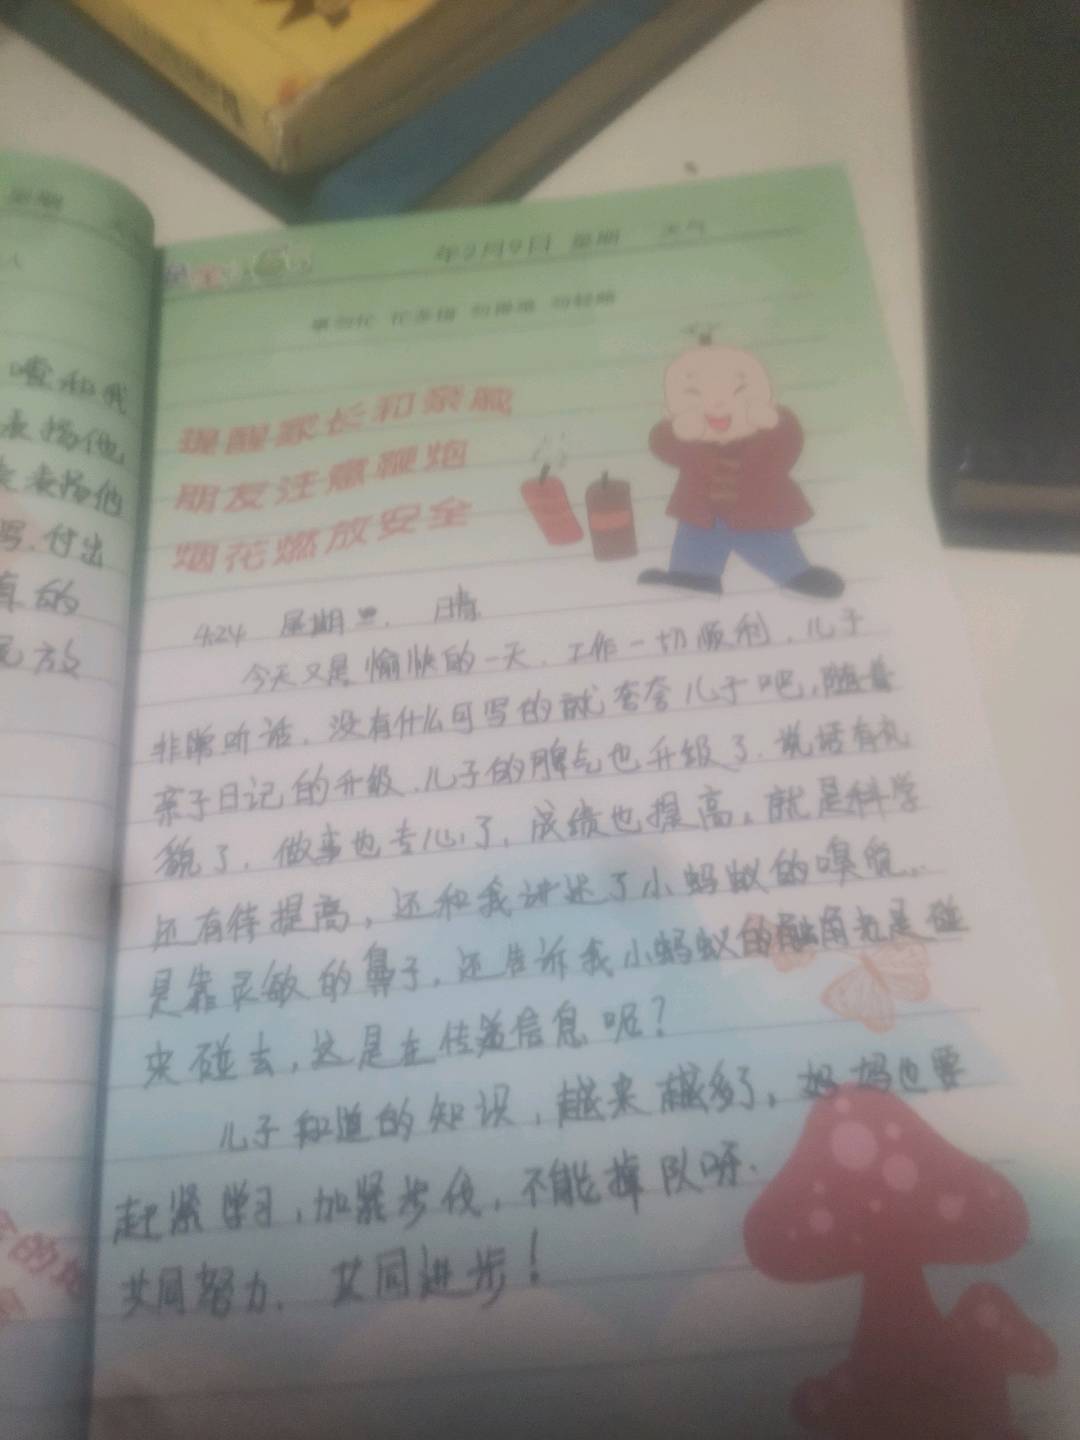 星期
喳和我
表扬他
表扬他
写.付出
真的
年2月9日 星期 天气
提醒家长和亲戚
朋友注意鞭炮
烟花燃放安全
4.24 星期三. 晴
今天又是愉快的一天.工作一切顺利.儿子
非常听话.没有什么可写的就夸夸儿子吧,随着
亲子日记的升级.儿子的脾气也升级了.说话有礼
貌了.做事也专心了,成绩也提高,就是科学
还有待提高,还和我讲述了小蚂蚁的嗅觉..
是靠灵敏的鼻子,还告诉我小蚂蚁的触角老是碰
来碰去,这是在传递信息呢?
儿子知道的知识,越来越多了,妈妈也要
赶紧学习,加紧步伐,不能掉队呀.
共同努力. 共同进步!